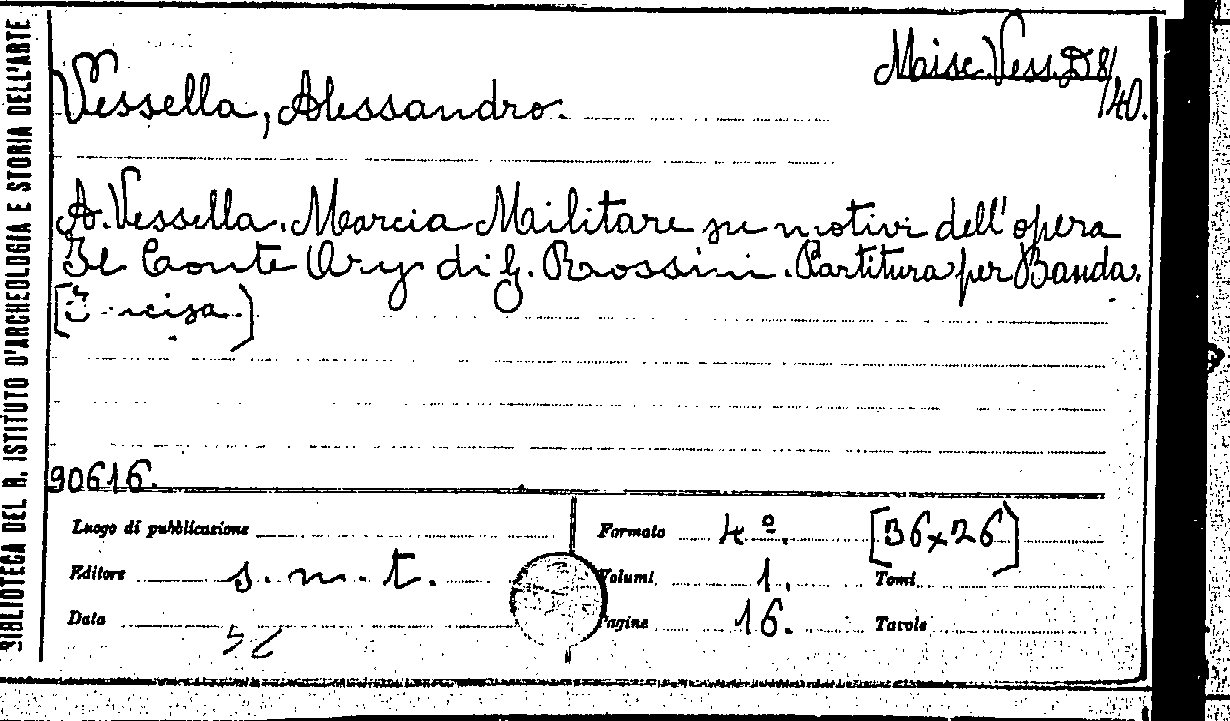 BIBLIOTECA DEL R. ISTITUTO D'ARCHEOLOGIA E STORIA DELL'ARTE
Misc. Vess. D 8/40.
Vessella, Alessandro.
A. Vessella. Marcia Militare su motivi dell'opera
Il Conte Ory di G. Rossini. Partitura per Banda.
90616.
Luogo di pubblicazione
Formato 4º. [36x26]
Editore s. n. t.
Volumi 1. Tomi
Data
Pagine 16. Tavole